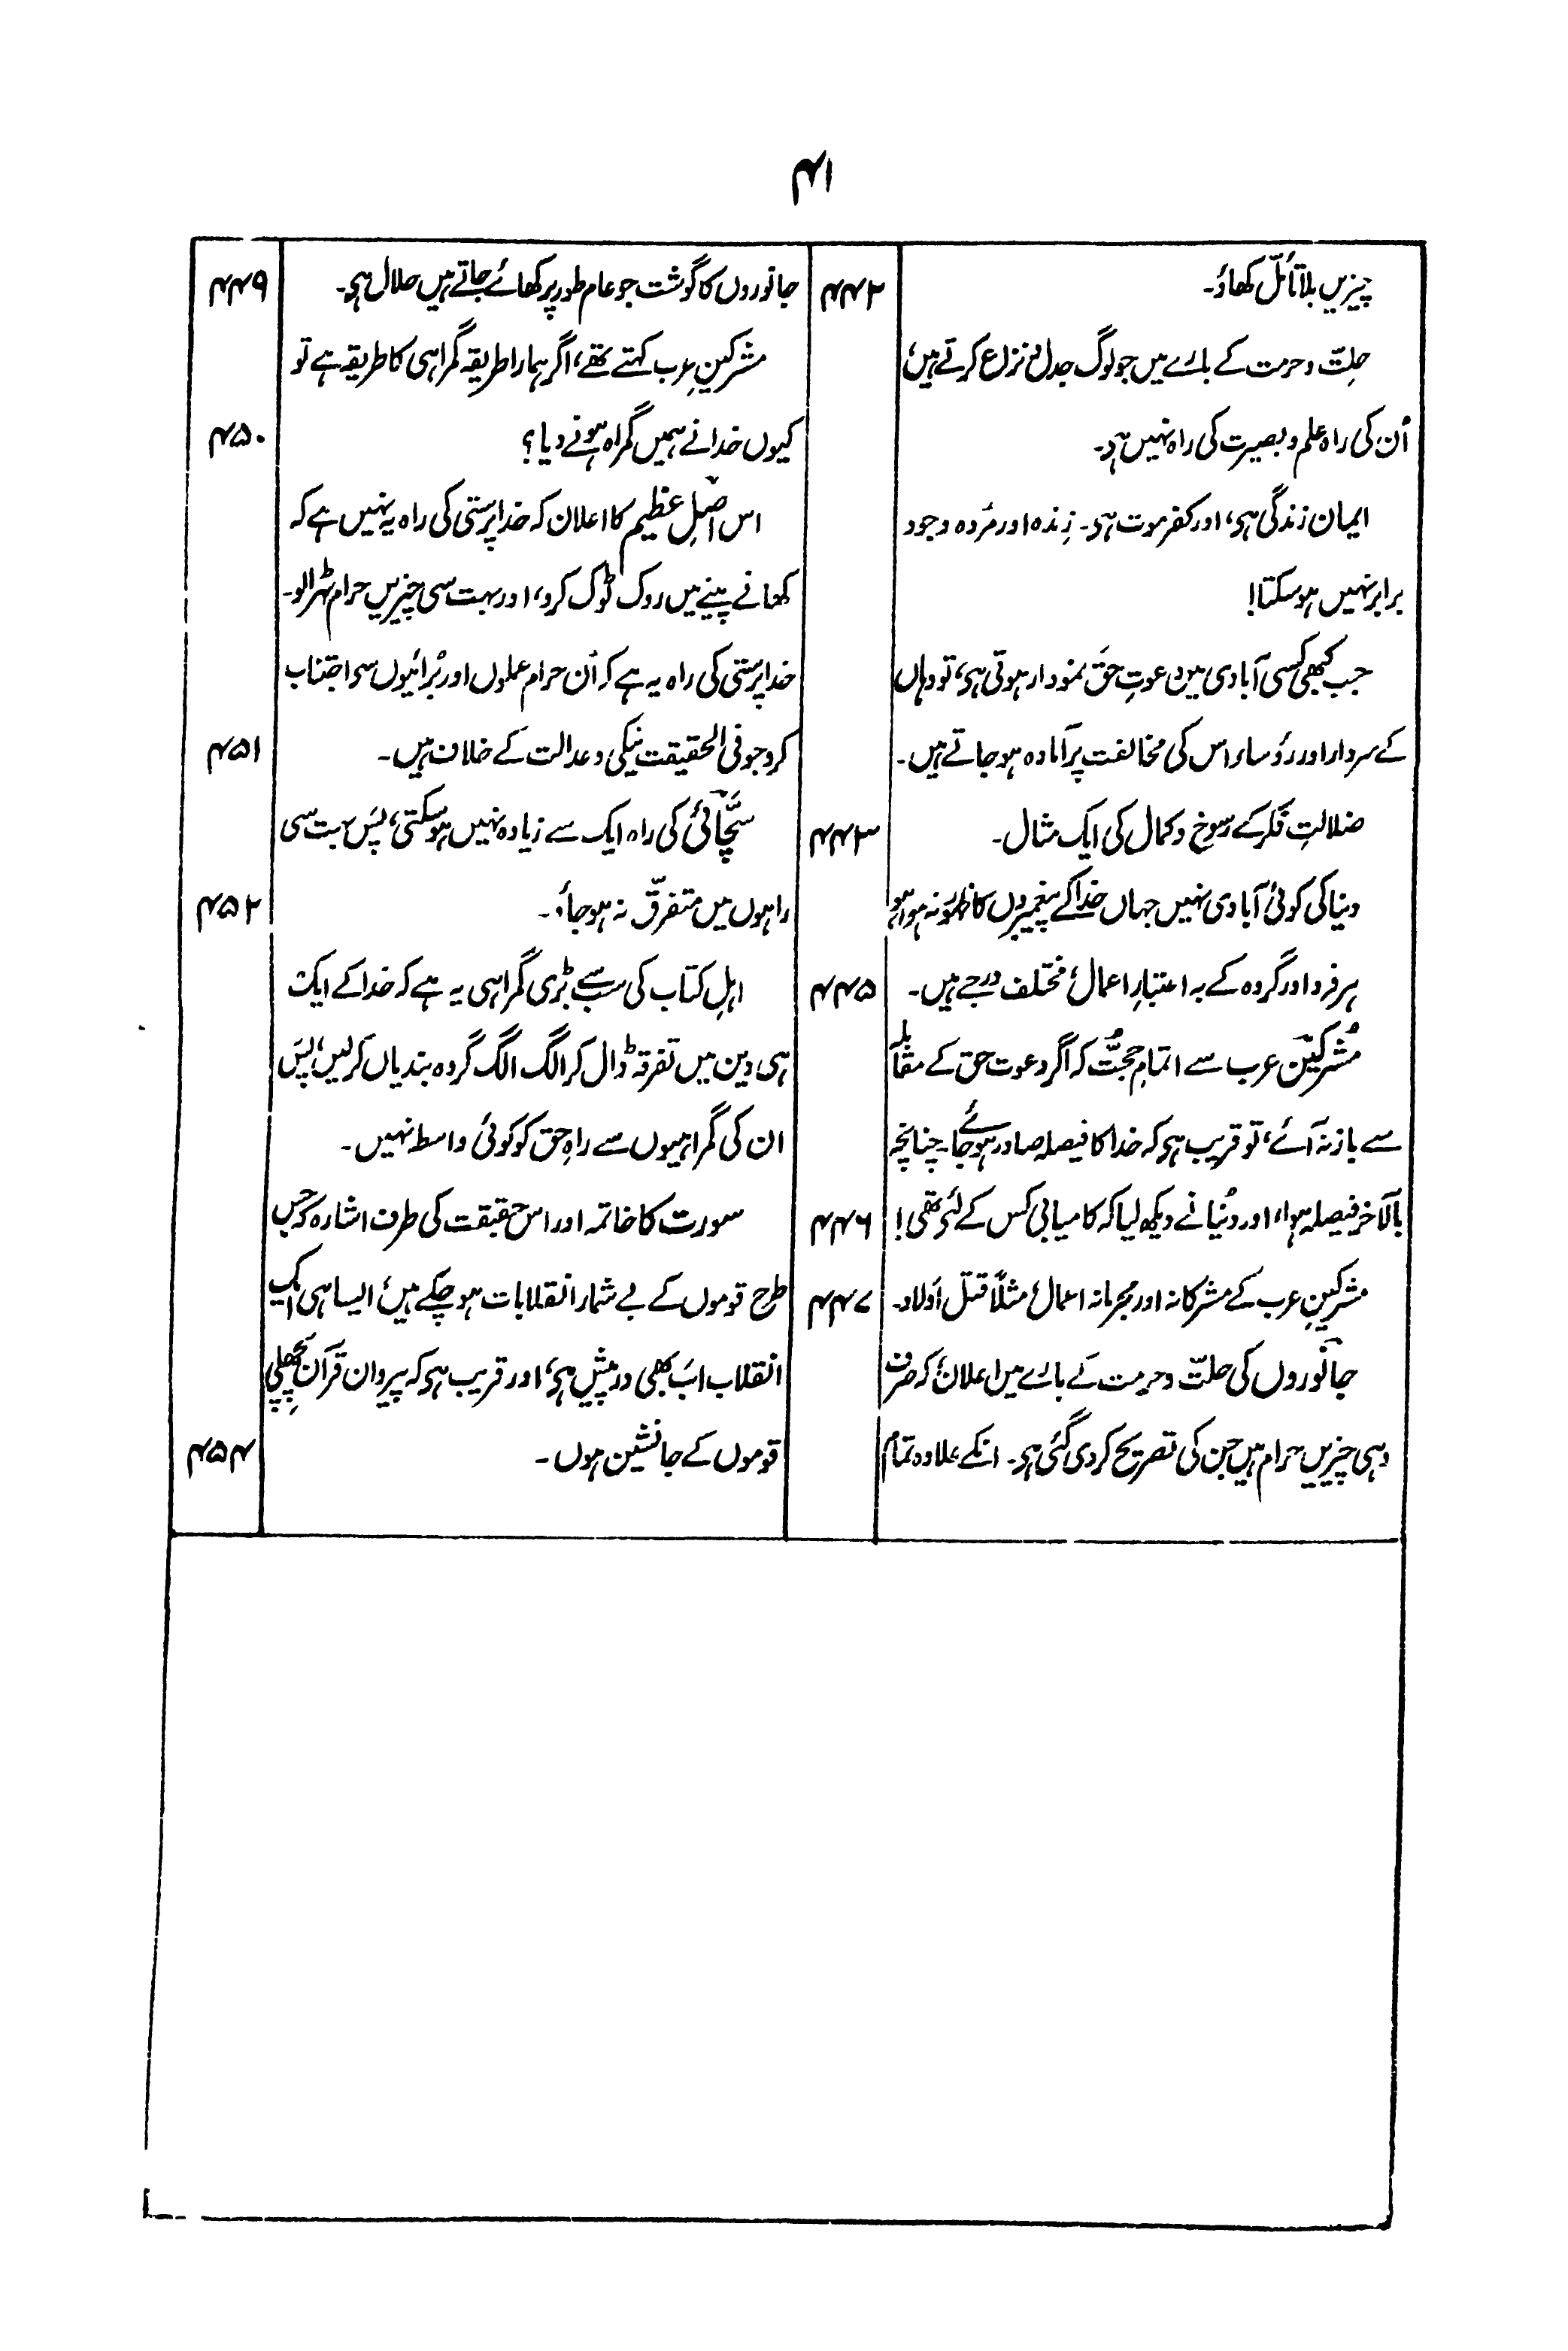 ۴۱
چیزیں بلا تأمل کھاؤ۔ ۴۴۲
حلّت و حرمت کے بارے میں جو لوگ جدل و نزاع کرتے ہیں،
اُن کی راہ علم و بصیرت کی راہ نہیں ہے۔
ایمان زندگی ہی، اور کفر موت ہے۔ زندہ اور مُردہ وجود
برابر نہیں ہو سکتا!
جب کبھی کسی آبادی میں دعوتِ حق نمودار ہوتی ہی، تو وہاں
کے سردار اور رؤساء اس کی مخالفت پر آمادہ ہو جاتے ہیں۔
ضلالتِ فکر کے رسوخ و کمال کی ایک مثال۔ ۴۴۳
دنیا کی کوئی آبادی نہیں جہاں خدا کے پیغمبروں کا ظہور نہ ہوا ہو
ہر فرد اور گروہ کے بہ اعتبارِ اعمال مختلف درجے ہیں۔ ۴۴۵
مشرکینِ عرب سے اتمامِ حجّت کہ اگر دعوت حق کے مقابلہ
سے باز نہ آئے، تو قریب ہی کہ خدا کا فیصلہ صادر ہو جائے۔ چنانچہ
بالآخر فیصلہ ہوا، اور دُنیا نے دیکھ لیا کہ کامیابی کس کے لئے تھی! ۴۴۶
مشرکینِ عرب کے مشرکانہ اور مجرمانہ اعمال، مثلاً قتل اولاد۔ ۴۴۷
جانوروں کی حلّت و حرمت کے بارے میں اعلان، کہ صرف
وہی چیزیں حرام ہیں جن کی تصریح کر دی گئی ہی۔ انکے علاوہ تمام
جانوروں کا گوشت جو عام طور پر کھائے جاتے ہیں حلال ہی۔ ۴۴۹
مشرکینِ عرب کہتے تھے، اگر ہمارا طریقہ گمراہی کا طریقہ ہے تو
کیوں خدا نے ہمیں گمراہ ہونے دیا؟ ۴۵۰
اس اصلِ عظیم کا اعلان کہ خدا پرستی کی راہ یہ نہیں ہے کہ
کھانے پینے میں روک ٹوک کرو، اور بہت سی چیزیں حرام ٹھہرا لو۔
خدا پرستی کی راہ یہ ہے کہ اُن حرام عملوں اور بُرائیوں سے اجتناب
کرو جو فی الحقیقت نیکی و عدالت کے خلاف ہیں۔ ۴۵۱
سچّائی کی راہ ایک سے زیادہ نہیں ہو سکتی، پس بہت سی
راہوں میں متفرق نہ ہو جاؤ۔ ۴۵۲
اہلِ کتاب کی سب سے بڑی گمراہی یہ ہے کہ خدا کے ایک
ہی دین میں تفرقہ ڈال کر الگ الگ گروہ بندیاں کر لیں، پس
ان کی گمراہیوں سے راہِ حق کو کوئی واسطہ نہیں۔
سورت کا خاتمہ اور اس حقیقت کی طرف اشارہ کہ جس
طرح قوموں کے بے شمار انقلابات ہو چکے ہیں، ایسا ہی ایک
انقلاب اب بھی درپیش ہی، اور قریب ہی کہ پیروان قرآن پچھلی
قوموں کے جانشین ہوں۔ ۴۵۴